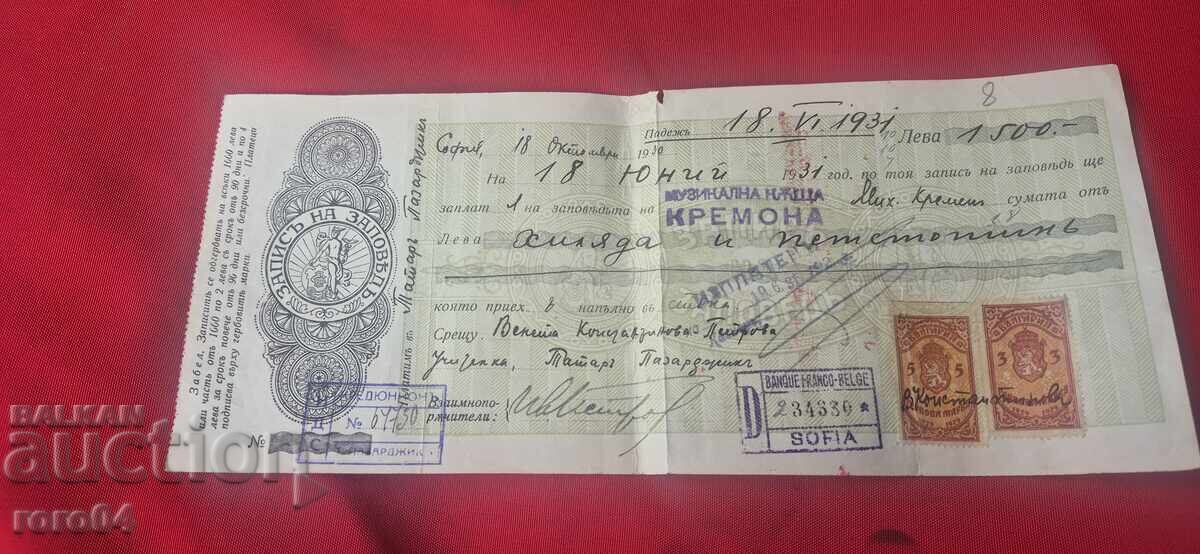 Забел. Записитѣ се обгербватъ на всѣки 1660 лева
или часть отъ 1660 по 2 лева съ срокъ отъ 90 дни а по 4
лева за срокъ повече отъ 90 дни или безсрочни. Платеца
подписва върху гербовитѣ марки.
ЗАПИСЪ НА ЗАПОВѢДЬ
№
Платимъ въ Татаръ Пазарджикъ
8
София, 18 Октомври 1930
Падежъ 18. VI 1931
Лева 1500.-
На 18 Юний 1931 год. по тоя записъ на заповѣдь ще
заплатя на заповѣдьта на МУЗИКАЛНА КѪЩА КРЕМОНА Мих. Кременъ сумата отъ
Лева хиляда и петстотинъ
която приехъ напълно въ стока
ИЗПЛАТЕН
Срещу: Венета Константинова Петрова
Учителка, Татаръ Пазарджикъ
Взаимнопоржчители:
№ 64730
BANQUE FRANCO-BELGE
D 234330 *
SOFIA
БЪЛГАРИЯ
5 5
БЪЛГАРИЯ
3 3
В Константинова
БАЛКАН
auction
roro64